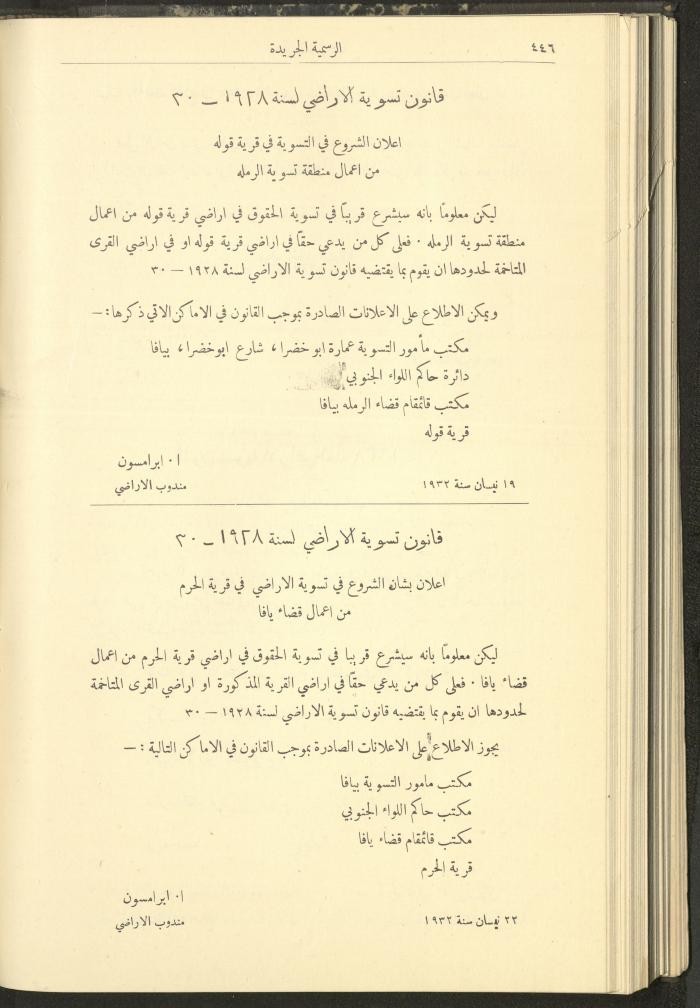 ٤٤٦
الرسمية الجريدة
قانون تسوية الاراضي لسنة ١٩٢٨ ـ ٣٠
اعلان الشروع في التسوية في قرية قوله
من اعمال منطقة تسوية الرمله
ليكن معلومًا بانه سيشرع قريبًا في تسوية الحقوق في اراضي قرية قوله من اعمال
منطقة تسوية الرمله . فعلى كل من يدعي حقًا في اراضي قرية قوله او في اراضي القرى
المتاخمة لحدودها ان يقوم بما يقتضيه قانون تسوية الاراضي لسنة ١٩٢٨ — ٣٠
ويمكن الاطلاع على الاعلانات الصادرة بموجب القانون في الاماكن الاتي ذكرها: —
مكتب مأمور التسوية عمارة ابو خضرا ، شارع ابوخضرا ، بيافا
دائرة حاكم اللواء الجنوبي
مكتب قائمقام قضاء الرمله بيافا
قرية قوله
ا . ابرامسون
١٩ نيسان سنة ١٩٣٢ مندوب الاراضي
قانون تسوية الاراضي لسنة ١٩٢٨ ـ ٣٠
اعلان بشان الشروع في تسوية الاراضي في قرية الحرم
من اعمال قضاء يافا
ليكن معلومًا بانه سيشرع قريبا في تسوية الحقوق في اراضي قرية الحرم من اعمال
قضاء يافا . فعلى كل من يدعي حقًا في اراضي القرية المذكورة او اراضي القرى المتاخمة
لحدودها ان يقوم بما يقتضيه قانون تسوية الاراضي لسنة ١٩٢٨ — ٣٠
يجوز الاطلاع على الاعلانات الصادرة بموجب القانون في الاماكن التالية : —
مكتب مامور التسوية بيافا
مكتب حاكم اللواء الجنوبي
مكتب قائمقام قضاء يافا
قرية الحرم
ا . ابرامسون
٢٢ نيسان سنة ١٩٣٢ مندوب الاراضي